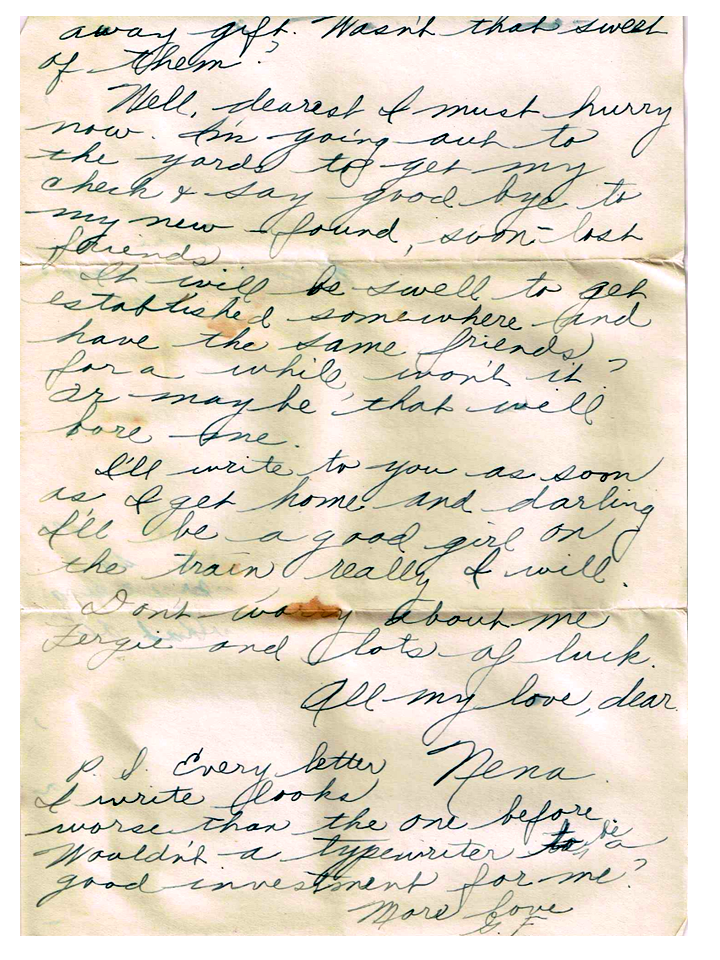 away gift. Wasn't that sweet
of them?
Well, dearest I must hurry
now. I'm going out to
the yards to get my
check & say good bye to
my new-found, soon-lost
friends
It will be swell to get
established somewhere (and
have the same friends)
for a while won't it?
Or maybe that will
bore me.
I'll write to you as soon
as I get home and darling
I'll be a good girl on
the train really I will.
Dont worry about me
Fergie and lots of luck.
All my love, dear
Nena.
P.S. Every letter
I write looks
worse than the one before.
Wouldn't a typewriter be a
good investment for me?
More love
G.F.